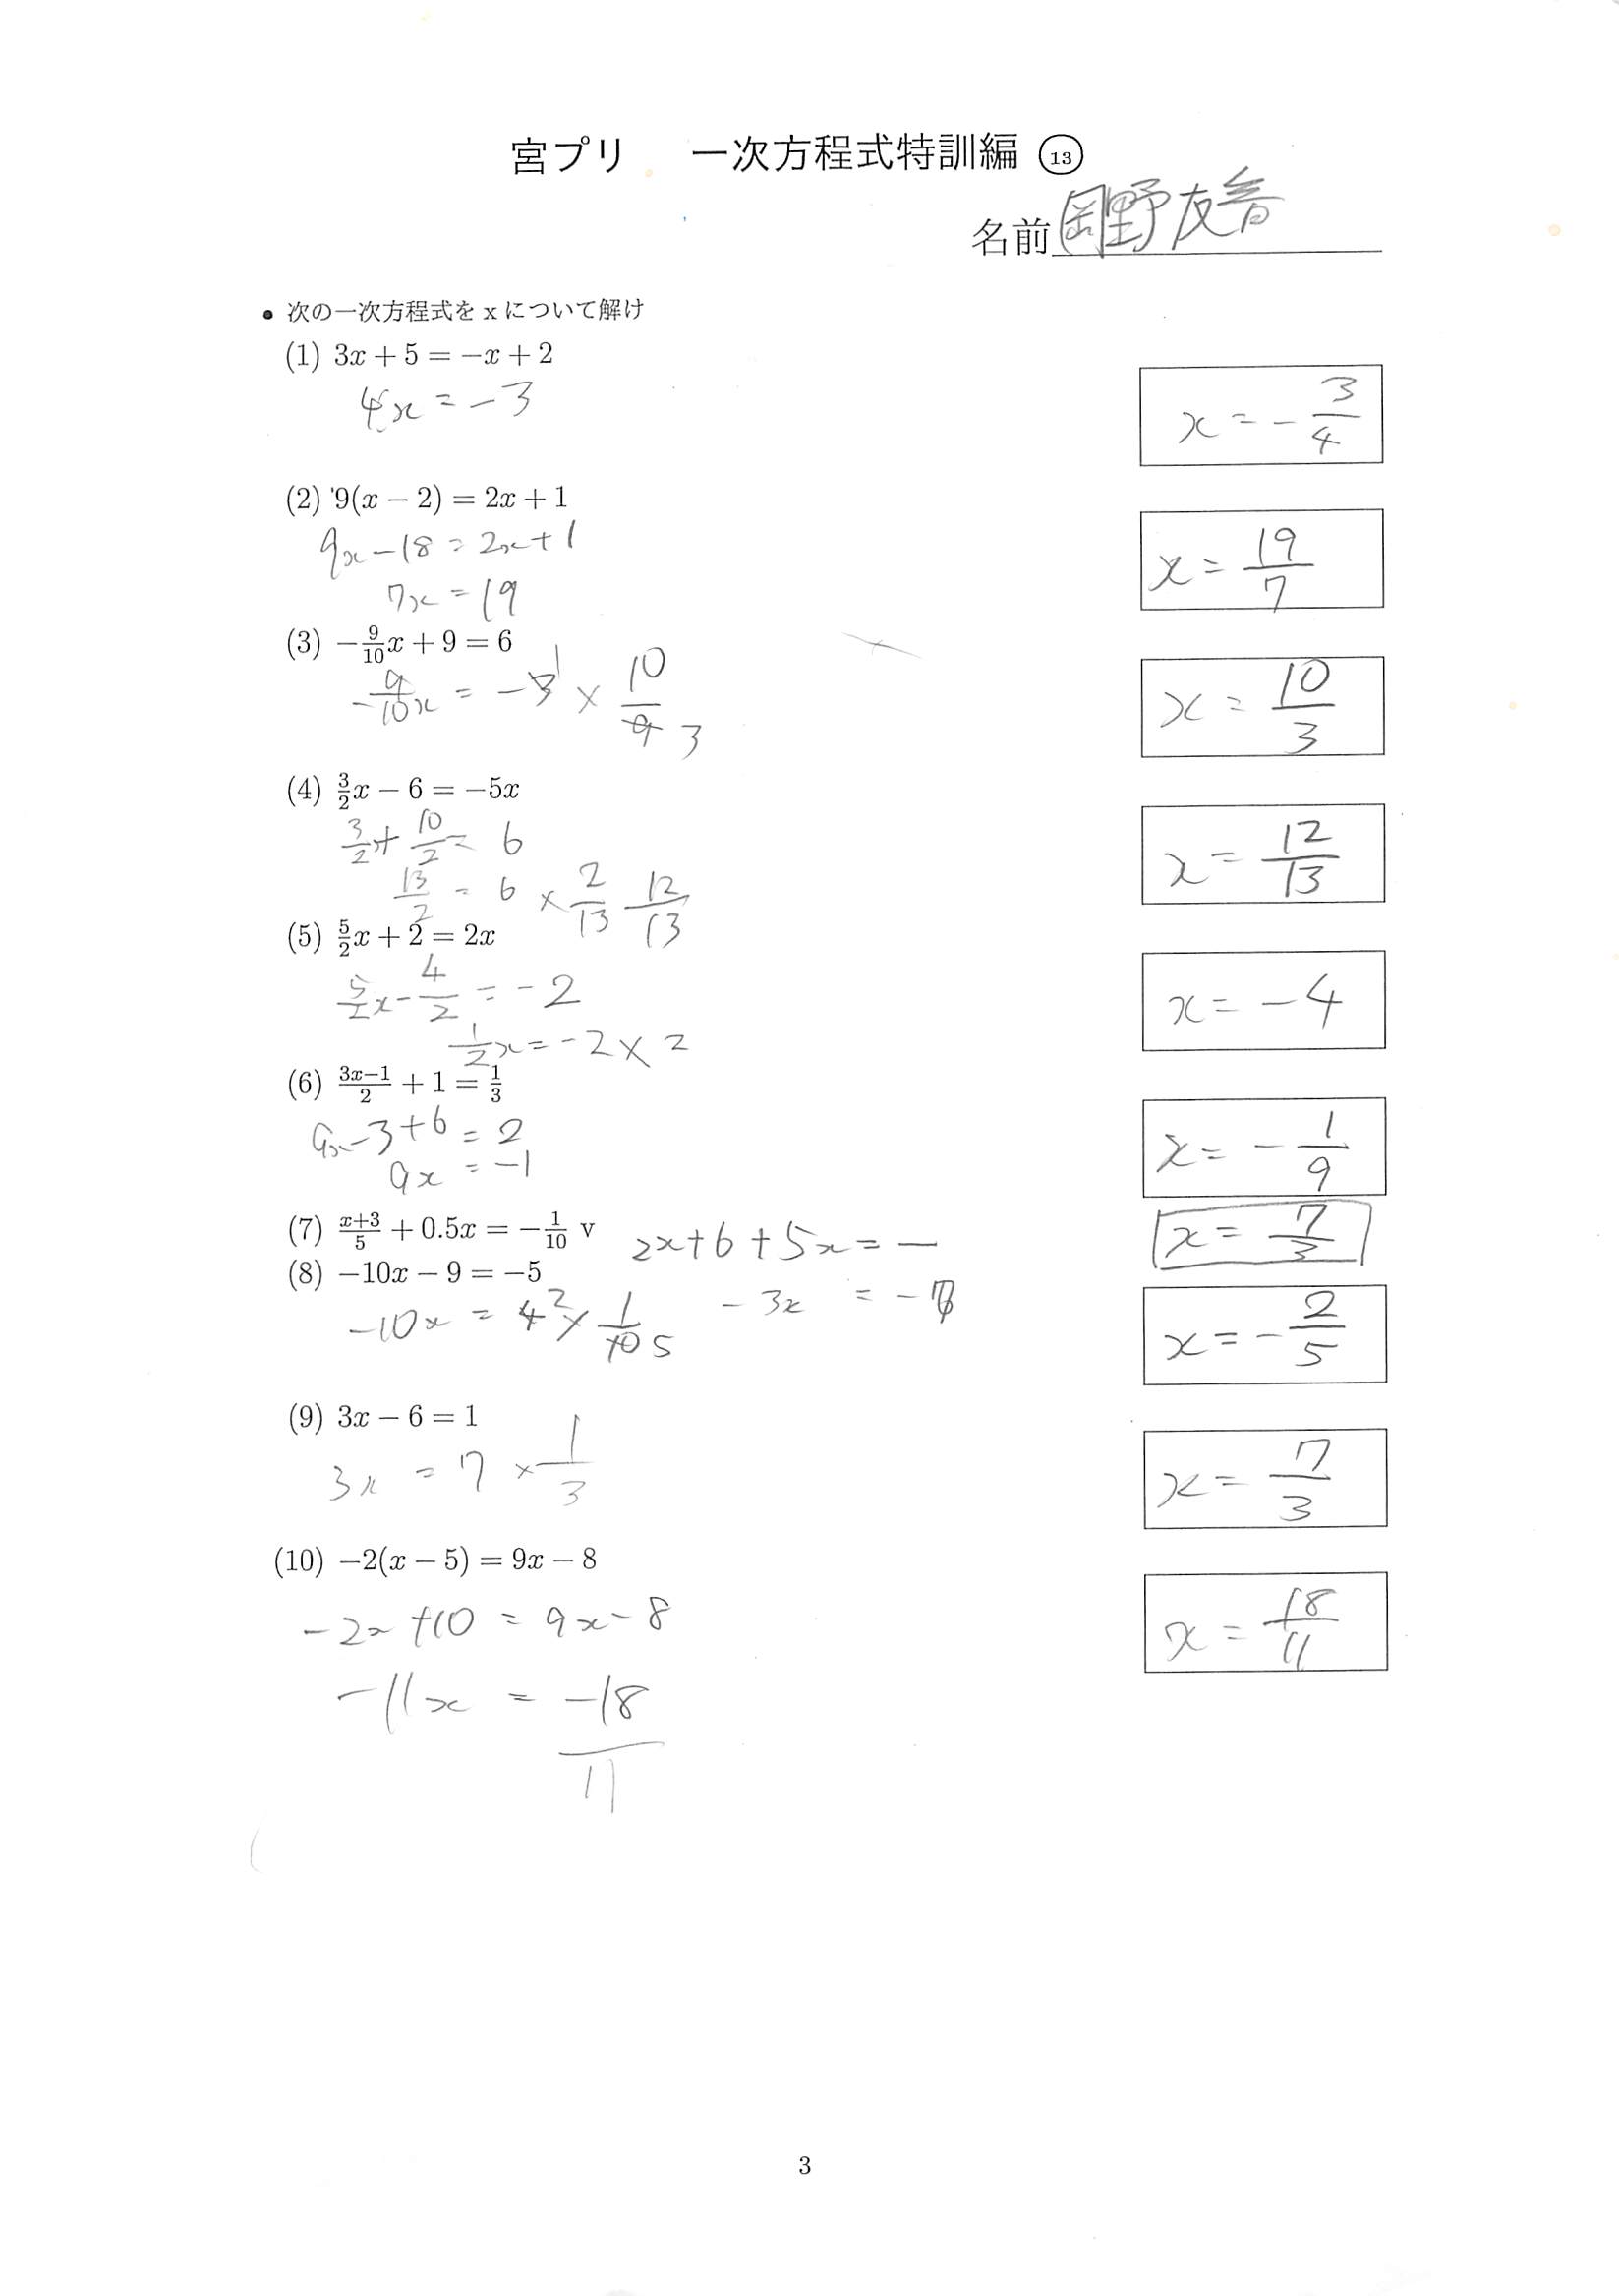 宮プリ 一次方程式特訓編 ⑬
名前 岡野友香
• 次の一次方程式を x について解け
(1) 3x + 5 = −x + 2
4x = −3
x = −3/4
(2) 9(x − 2) = 2x + 1
9x − 18 = 2x + 1
7x = 19
x = 19/7
(3) −9/10x + 9 = 6
−9/10x = −3 1 × 10/9 3
x = 10/3
(4) 3/2x − 6 = −5x
3/2 + 10/2 = 6
13/2 = 6 × 2/13 12/13
x = 12/13
(5) 5/2x + 2 = 2x
5/2x − 4/2 = −2
1/2x = −2 × 2
x = −4
(6) 3x−1/2 + 1 = 1/3
9x − 3 + 6 = 2
9x = −1
x = −1/9
(7) x+3/5 + 0.5x = −1/10 v
2x + 6 + 5x = −
−3x = −7
x = 7/3
(8) −10x − 9 = −5
−10x = 4 2 × 1/10 5
x = −2/5
(9) 3x − 6 = 1
3x = 7 × 1/3
x = 7/3
(10) −2(x − 5) = 9x − 8
−2x + 10 = 9x − 8
−11x = −18/11
x = 18/11
3